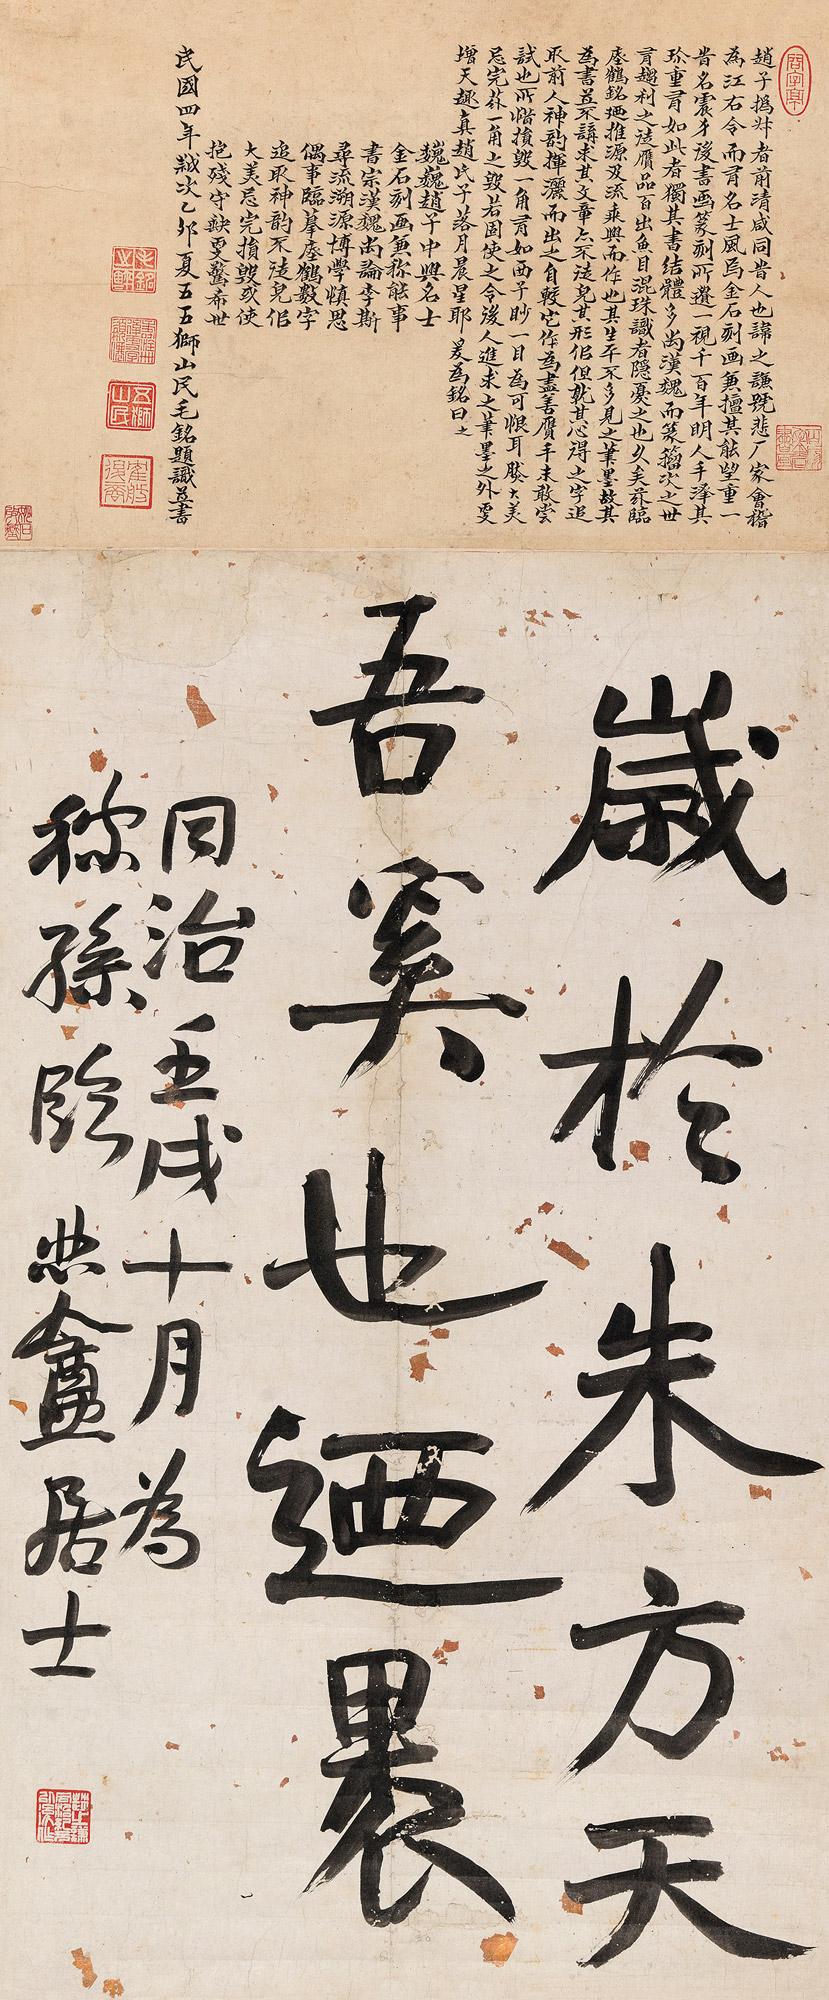 趙子撝叔者前清咸同昔人也諱之謙號悲厂家會稽
為江右令而有名士風焉金石刻画兼擅其能望重一
昔名震才後書画篆刻所遺一視千百年明人手澤其
珍重有如此者獨其書結體多尚漢魏而篆籀次之世
有趨利之徒贋品百出魚目混珠識者隱憂之也久矣茲臨
瘞鶴銘迺推源及流乘興而作也其生平不多見之筆墨故其
為書並不講求其文章亦不徒皃其形佀但乾其心得之字追
取前人神韵揮灑而出之自較它作為盡善贋手未敢尝
試也所惜損毀一角有如西子眇一目為可恨耳然大美
忌完茲一角之毀若固使之令後人進求之筆墨之外更
增天趣真趙氏子落月晨星耶爰為銘曰之
巍巍趙子中興名士
金石刻画兼称能事
書宗漢魏尚論李斯
尋流溯源博學慎思
偶事臨摹瘞鶴數字
追取神韵不徒皃佀
大美忌完損毀或使
抱殘守缺更驚希世
民國四年歲次乙卯夏五五獅山民毛銘題識並書
歲於朱方天
吾奚也迺裹
同治壬戌十月為
稼孫臨 悲盦居士